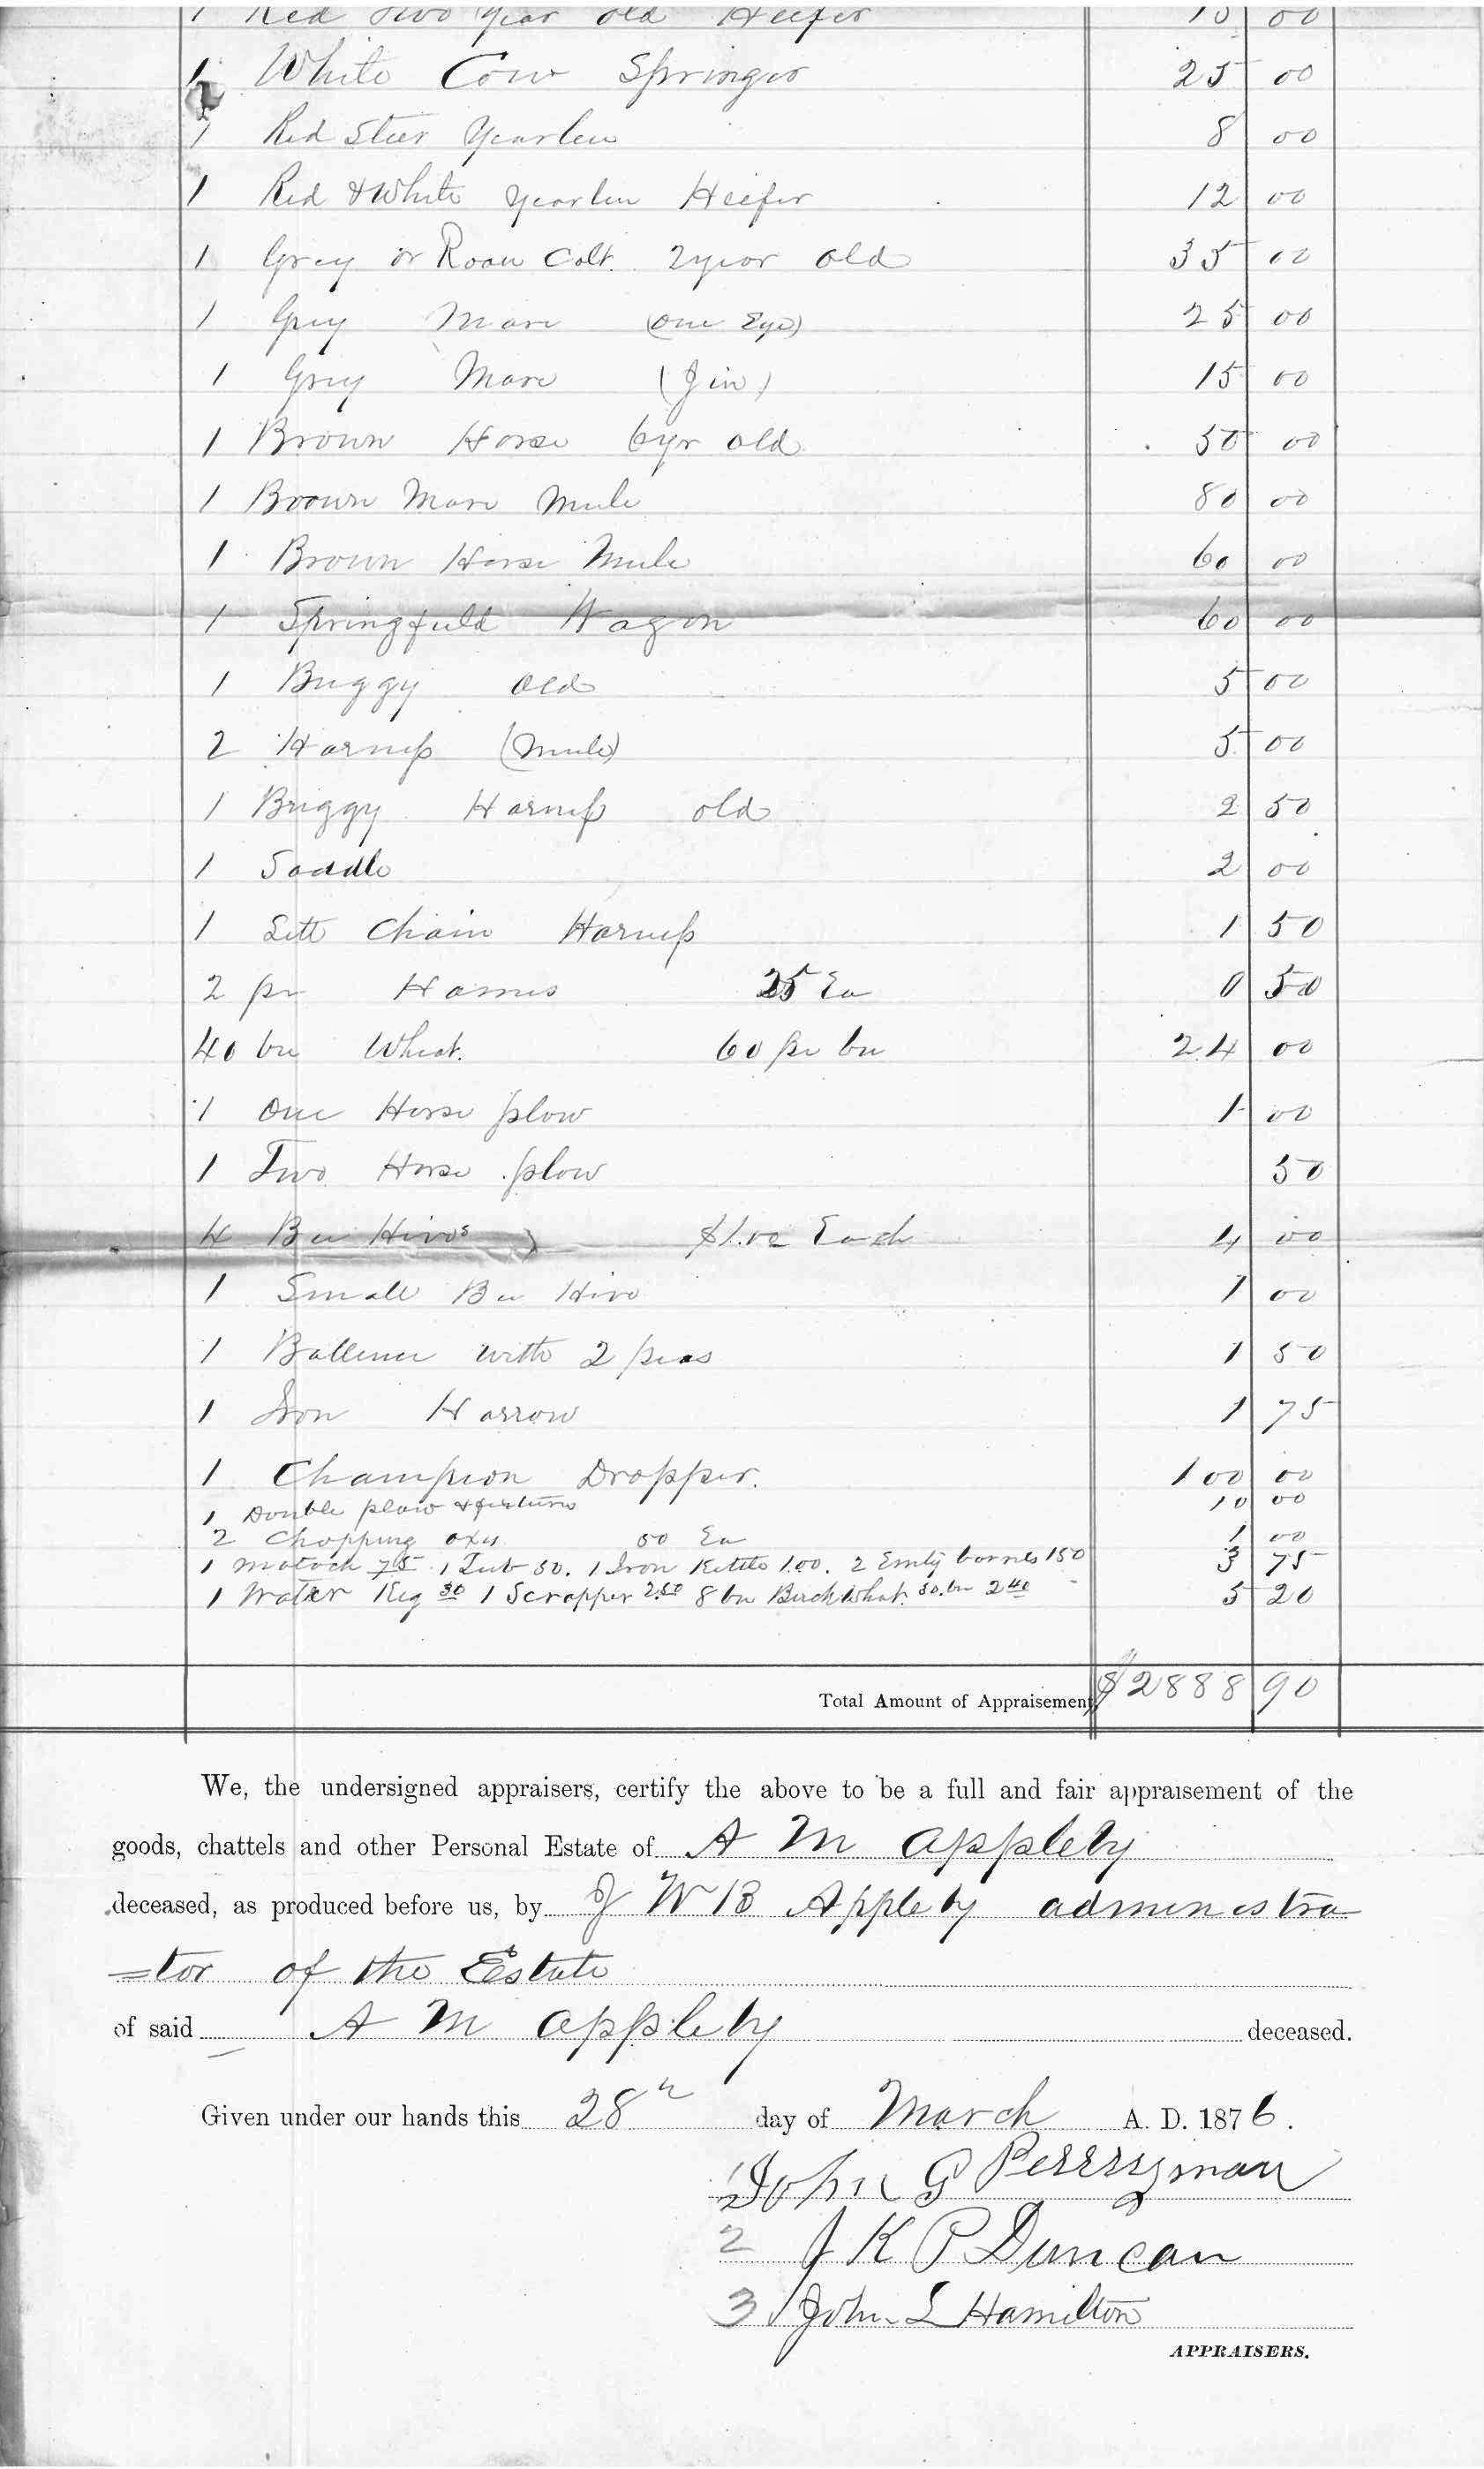 1 Red two year old Heefer 15 00
1 White Cow Springer 25 00
1 Red Steer Yearlin 8 00
1 Red & White yearlin Heefer 12 00
1 Grey or Roan Colt. 2 year old 35 00
1 Grey Mare (one Eye) 25 00
1 Grey Mare (Jin) 15 00
1 Brown Horse 6yr old 50 00
1 Brown Mare Mule 80 00
1 Brown Horse Mule 60 00
1 Springfield Wagon 60 00
1 Buggy old 5 00
2 Harness (Mule) 5 00
1 Buggy Harness old 2 50
1 Saddle 2 00
1 Sett Chain Harness 1 50
2 pr Hames 25 Ea 0 50
40 bu Wheat. 60 per bu 24 00
1 One Horse plow 1 00
1 Two Horse plow 50
4 Bee Hives $1.00 Each 4 00
1 Small Bee Hive 1 00
1 Ballence with 2 peas 1 50
1 Iron Harrow 1 75
1 Champion Dropper. 100 00
1 Double plow & 10 00
2 Chopping axes 50 Ea 1 00
1 Matock 75 1 Tub 50. 1 Iron Kettle 1.00. 2 Emty 150 3 75
1 Water Keg 30 1 Scrapper 2.50 8 bu Buckwhat. 30. bu 2 40 5 20
Total Amount of Appraisement, $2888 90
We, the undersigned appraisers, certify the above to be a full and fair appraisement of the
goods, chattels and other Personal Estate of A M Appleby
deceased, as produced before us, by J W B Appleby adminestra
=tor of the Estate
of said A M Appleby deceased.
Given under our hands this 28th day of March A. D. 1876.
1 John G Perrryman
2 J K P Duncan
3 John L Hamilton
APPRAISERS.